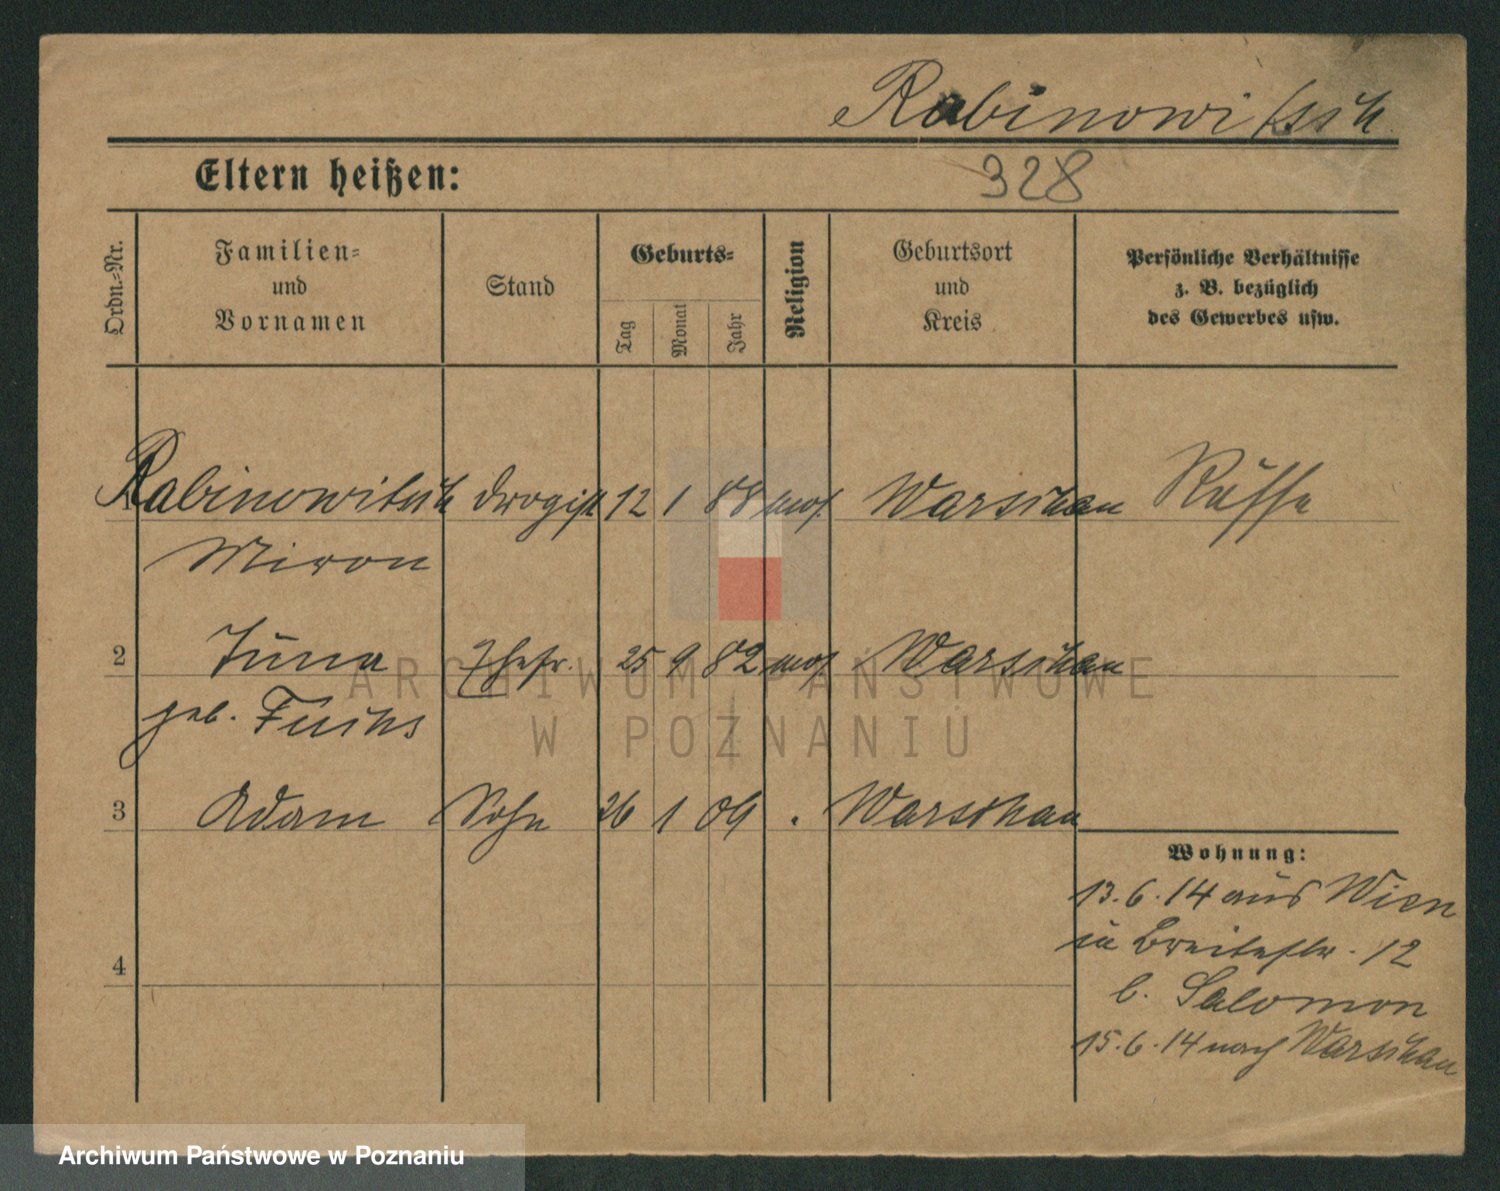 Rabinowitsch
328
Eltern heißen:
Ordn.=Nr.
Familien=
und
Vornamen
Stand
Geburts=
Tag
Monat
Jahr
Religion
Geburtsort
und
Kreis
Persönliche Verhältnisse
z. B. bezüglich
des Gewerbes usw.
Rabinowitsch Drogist 12 1 88 mos. Warschau Russe
Miron
2 Ehefr. 25 9 82 mos Warschau
geb. Fuchs
3 Adam Sohn 26 1 09 . Warschau
4
Wohnung:
13.6.14 aus Wien
in Breitestr. 12
b. Salomon
15.6.14 nach Warschau
ARCHIWUM PAŃSTWOWE
W POZNANIU
Archiwum Państwowe w Poznaniu